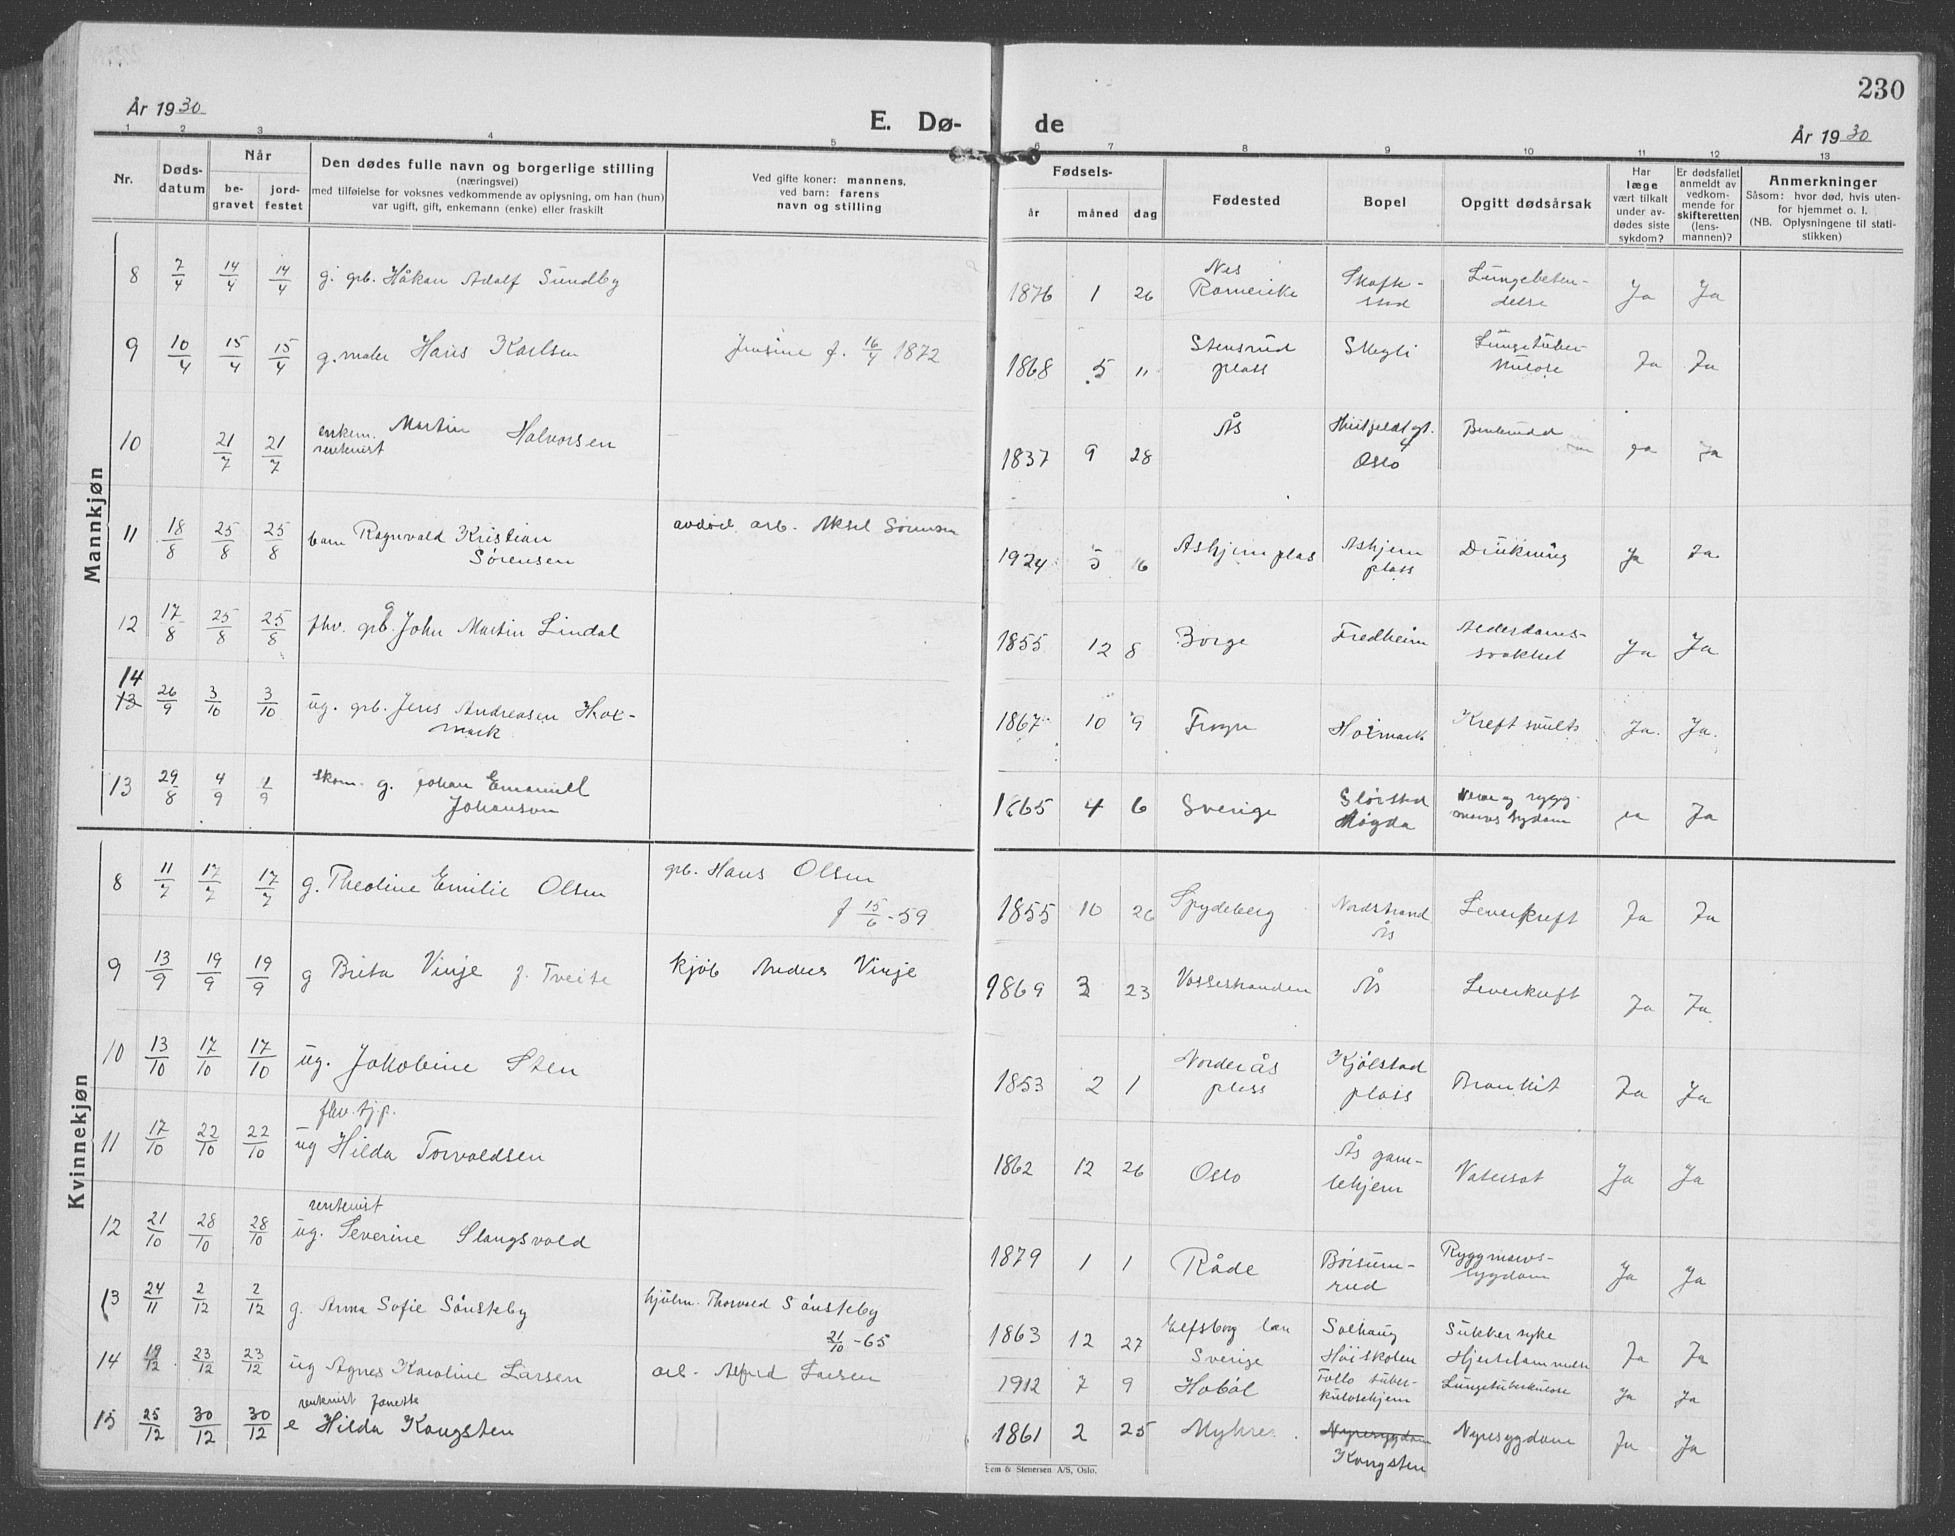 År 1930
E. Dø-
de
230
År 1930
1 2 3 4 5 6 7 8 9 10 11 12 13
Nr.
Døds-
datum
Når
be-
gravet
jord-
festet
Den dødes fulle navn og borgerlige stilling
(næringsvei)
med tilføielse for voksnes vedkommende av oplysning, om han (hun)
var ugift, gift, enkemann (enke) eller fraskilt
Ved gifte koner: mannens,
ved barn: farens
navn og stilling
Fødsels-
år måned dag
Fødested
Bopel
Opgitt dødsårsak
Har
læge
vært tilkalt
under av-
dødes siste
sykdom?
Er dødsfallet
anmeldt av
vedkom-
mende for
skifteretten
(lens-
mannen)?
Anmerkninger
Såsom: hvor død, hvis uten-
for hjemmet o. l.
(NB. Oplysningene til stati-
stikken)
Mannkjøn
8 7/4 14/4 14/4 g. grb. Håkan Adolf Sundby 1876 1 26 Nes Romerike Skofte-stad Lungebeten-delse Ja Ja
9 10/4 15/4 15/4 g. maler Hans Karlsen f. 16/4 1872 1868 5 11 Stensrud plass Skogli Lungetuber-kulose Ja Ja
10 21/7 21/7 enkem. rentenist Martin Halvorsen 1837 9 28 Ås Huitfeldtgt. 4 Oslo Benbrudd ja Ja
11 18/8 25/8 25/8 barn Ragnvald Kristian Sørensen avdød arb. Aksel Sørensen 1924 5 16 Askjem plas Askjem plass Drukning Ja Ja
12 17/8 25/8 25/8 fhv. grb. g John Martin Lindal 1855 12 8 Borge Fredheim Alderdoms-svakhet Ja Ja
14 13 26/9 3/10 3/10 ug. grb. Jens Andreasen Holmark 1867 10 9 Frogn Holmark Kreft svulst Ja. Ja.
13 29/8 4/9 4/9 skom. g. Johan Emanuel Johanson 1865 4 6 Sverige Slørstad Nerve og rygg-marvs sygdom ja Ja
Kvinnekjøn
8 11/7 17/7 17/7 g. Theoline Emilie Olsen grb. Hans Olsen f 15/6-59 1855 10 26 Spydeberg Nordstrand Ås Leverkreft Ja Ja
9 13/9 19/9 19/9 g Brita Vinje f. Tveite kjøb Anders Vinje 1869 3 23 Vossestranden Ås Leverkreft Ja Ja
10 13/10 17/10 17/10 ug. Jakobine Sten 1853 2 1 Norderås plass Kjølstad plass Bronkit Ja Ja
11 17/10 22/10 22/10 fhv. tjp. ug Hilda Torvaldsen 1862 12 26 Oslo Ås gam-lehjem Vatersot Ja Ja
12 21/10 28/10 28/10 rentenist ug. Severine Slangsvold 1879 1 1 Råde Børsum-rud Ryggmarvs-sygdom Ja Ja
13 24/11 2/12 2/12 g. Anna Sofie Sønsteby hjulm. Thorvald Sønsteby 21/10-65 1863 12 27 Elfsborg län Sverige Solhaug Høiskolen Sukkersyke Hjertelammelse Ja Ja
14 19/12 23/12 23/12 ug Agnes Karoline Larsen arb. Alfred Larsen 1912 7 9 Hobøl Follo tuber-kulosehjem Lungetuberkulose Ja Ja
15 25/12 30/12 30/12 rentenist e Hilda Kongsten 1861 2 25 Myhre Nyresygdom Kongsten Nyresygdom Ja Ja
Sem & Stenersen A/S, Oslo.